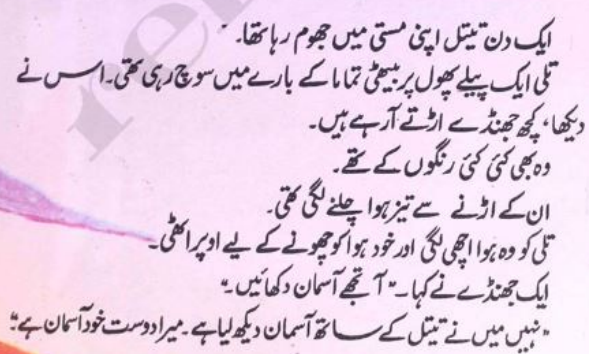 ایک دن تیتل اپنی مستی میں جھوم رہا تھا۔
تلی ایک پیلے پھول پر بیٹھی تماما کے بارے میں سوچ رہی تھی۔ اس نے
دیکھا، کچھ جھنڈے اڑتے آرہے ہیں۔
وہ بھی کئی کئی رنگوں کے تھے۔
ان کے اڑنے سے تیز ہوا چلنے لگی تھی۔
تلی کو وہ ہوا اچھی لگی اور خود ہوا کو چھونے کے لیے اوپر اٹھی۔
ایک جھنڈے نے کہا۔ "آ تجھے آسمان دکھائیں۔"
"نہیں میں نے تیتل کے ساتھ آسمان دیکھ لیا ہے۔ میرا دوست خود آسمان ہے۔"